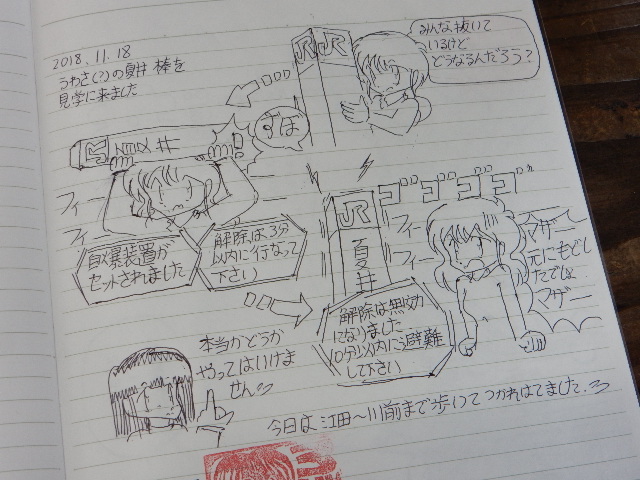 2018.11.18
うわさ(?)の夏井 棒を
見学に来ました
JR JR
みんな抜いて
いるけど
どうなるんだろう?
ずぼ
JR 夏井
フィー
フィー
自爆装置が
セットされました
解除は3分
以内に行なって
下さい
JR
夏井
ゴゴゴゴゴ
フィー
フィー
マザー
元にもどし
たでしょ
マザー
解除は無効
になりました
10分以内に避難
して下さい
本当かどうか
やってはいけま
せん
今日は江田〜川前まで歩いてつかれはてました.